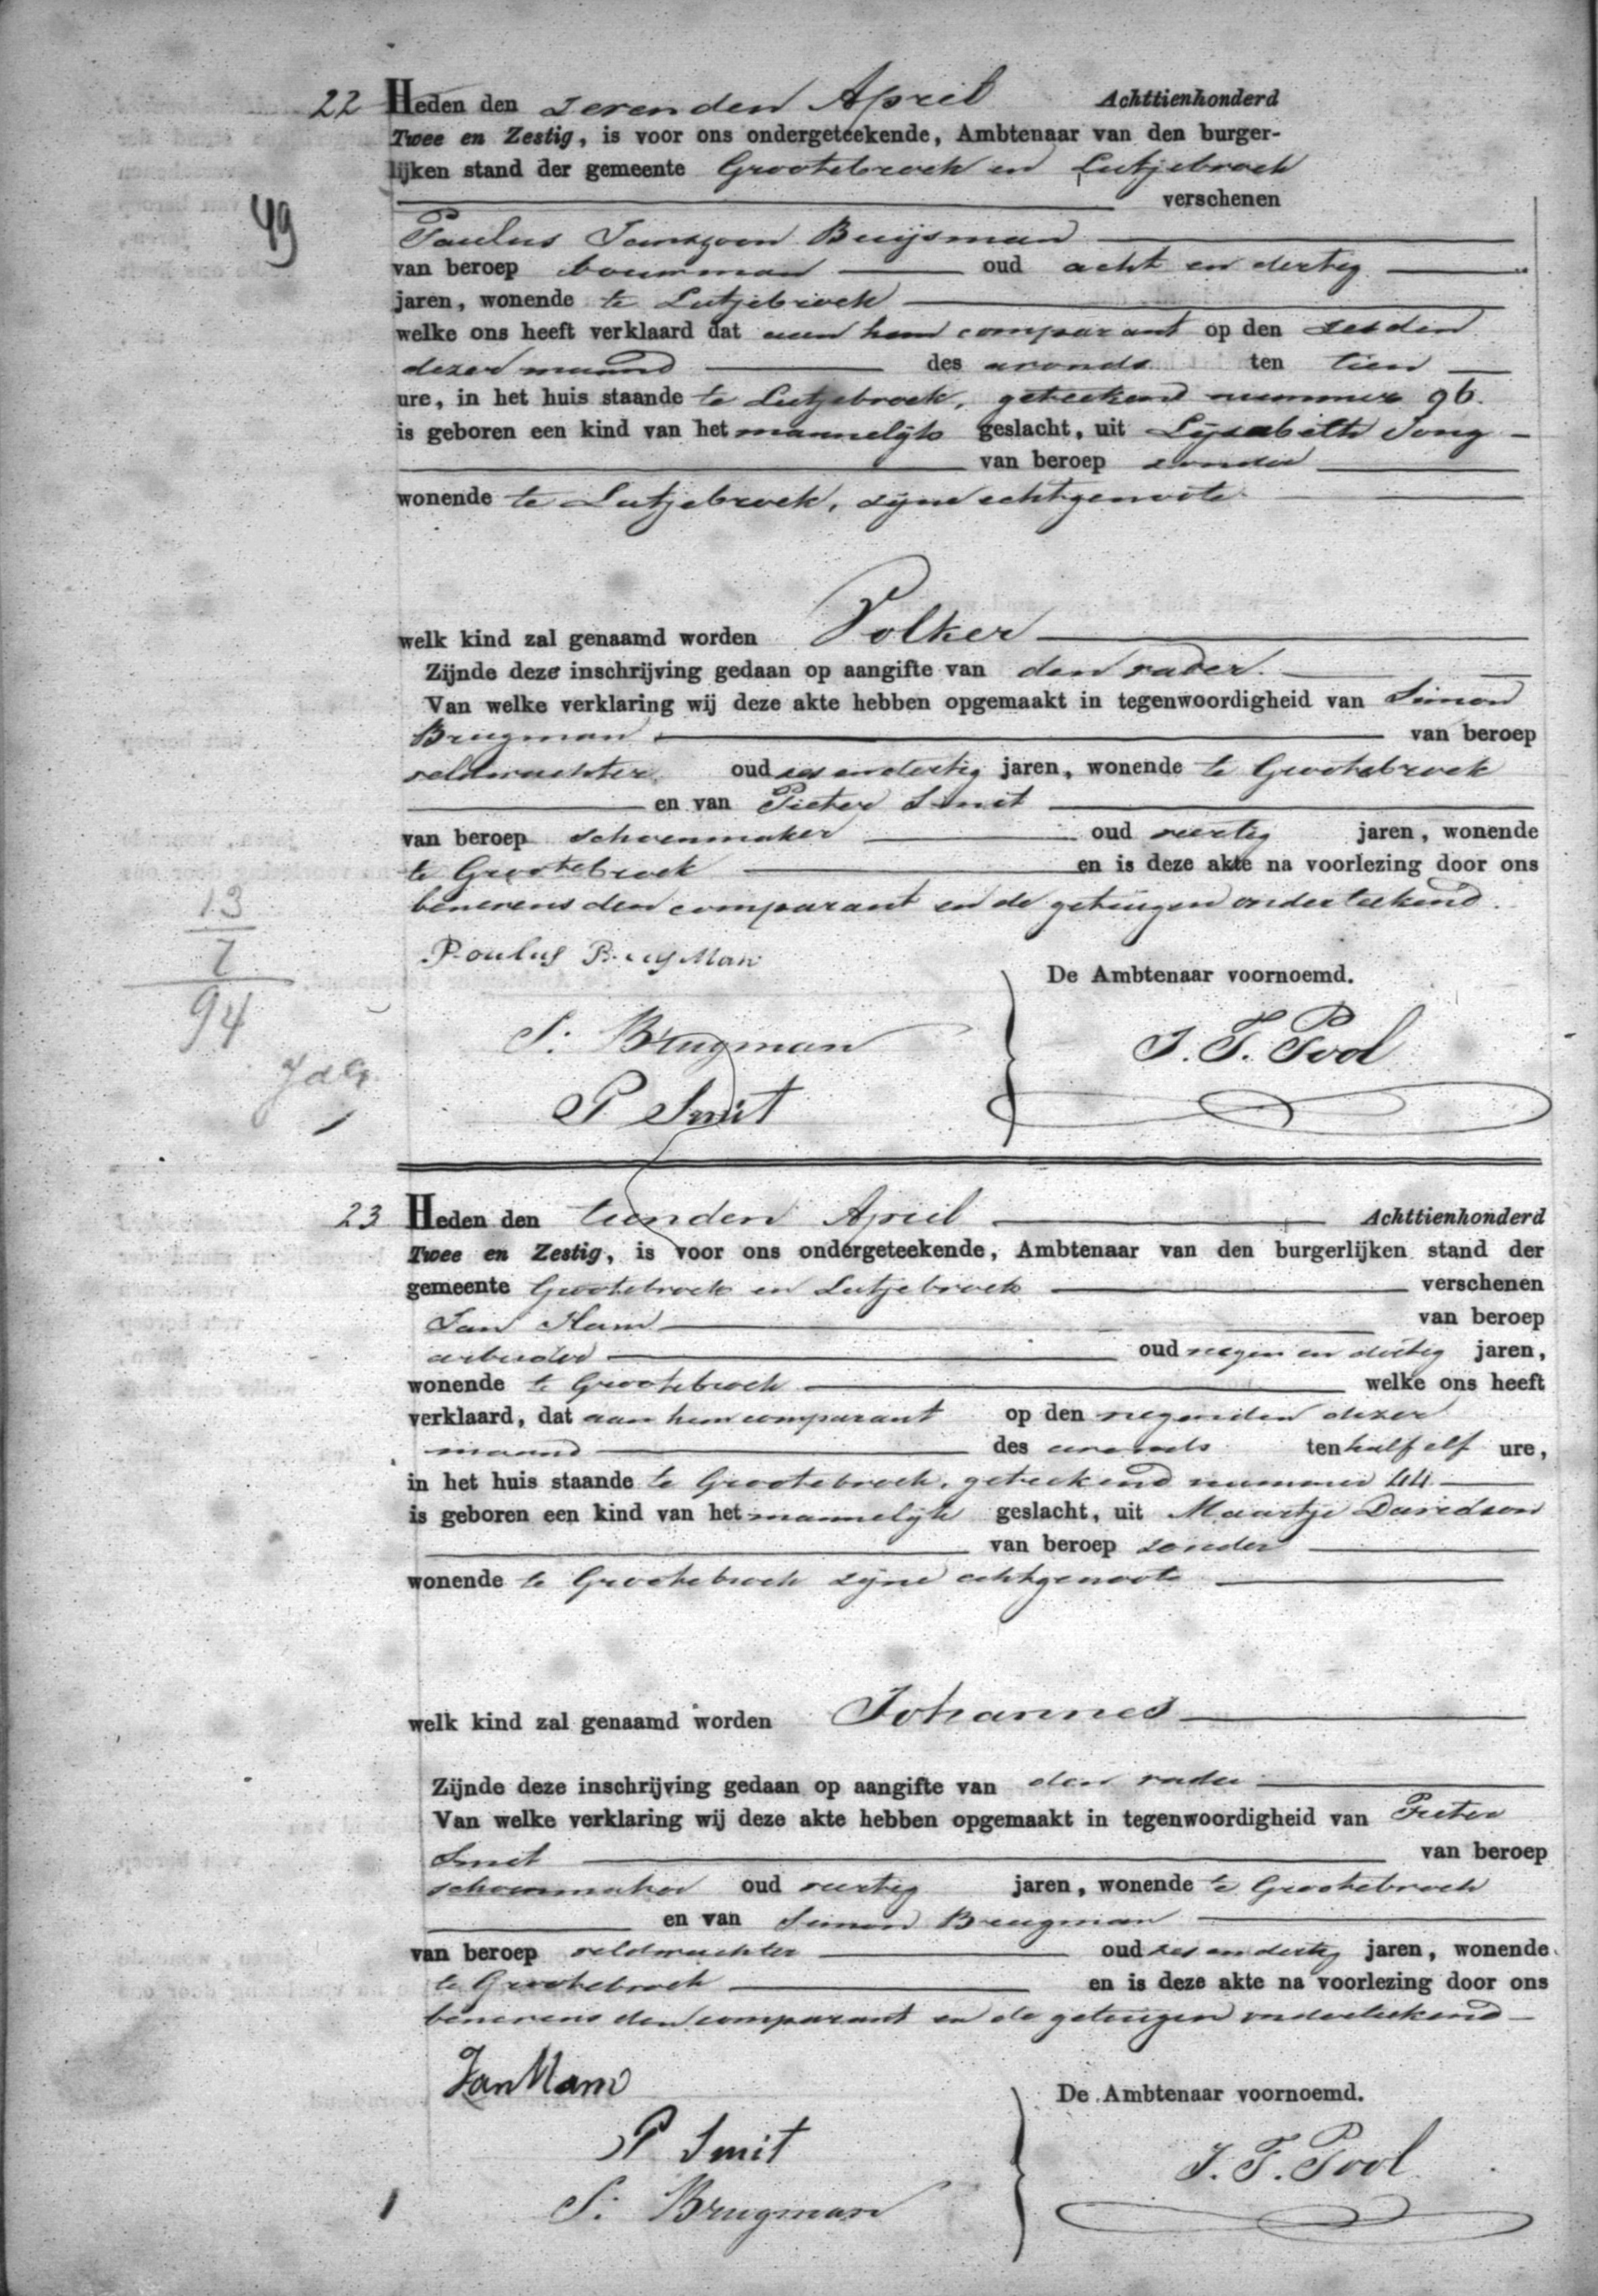 22 Heden den zevenden April Achttienhonderd
Twee en Zestig, is voor ons ondergeteekende, Ambtenaar van den burger-
lijken stand der gemeente Grootebroek en Lutjebroek
verschenen
49
Paulus Janszoon Buijsman
van beroep bouwman oud acht en dertig
jaren, wonende te Lutjebroek
welke ons heeft verklaard dat aan hem comparant op den zesden
dezer maand des avonds ten tien
ure, in het huis staande te Lutjebroek, geteekend nummer 96.
is geboren een kind van het mannelijk geslacht, uit Lijsabeth Jong
van beroep zonder
wonende te Lutjebroek, zijne echtgenoote
welk kind zal genaamd worden Volker
Zijnde deze inschrijving gedaan op aangifte van den vader.
Van welke verklaring wij deze akte hebben opgemaakt in tegenwoordigheid van Simon
Brugman van beroep
veldwachter oud zes en dertig jaren, wonende te Grootebroek
en van Pieter Smit
van beroep schoenmaker oud veertig jaren, wonende
te Grootebroek en is deze akte na voorlezing door ons
benevens den comparant en de getuigen onderteekend.
13
7
94
Poulus Buysman
De Ambtenaar voornoemd.
S. Brugman
J. F. Pool
P Smit
23 Heden den tienden April Achttienhonderd
Twee en Zestig, is voor ons ondergeteekende, Ambtenaar van den burgerlijken stand der
gemeente Grootebroek en Lutjebroek verschenen
Jan Mam van beroep
arbeider oud negen en dertig jaren,
wonende te Grootebroek welke ons heeft
verklaard, dat aan hem comparant op den negenden dezer
maand des avonds ten half elf ure,
in het huis staande te Grootebroek, geteekend nummer 44
is geboren een kind van het mannelijk geslacht, uit Maartje Davidson
van beroep zonder
wonende te Grootebroek zijne echtgenoote
welk kind zal genaamd worden Johannes
Zijnde deze inschrijving gedaan op aangifte van den vader
Van welke verklaring wij deze akte hebben opgemaakt in tegenwoordigheid van Pieter
Smit van beroep
schoenmaker oud veertig jaren, wonende te Grootebroek
en van Simon Brugman
van beroep veldwachter oud zes en dertig jaren, wonende
te Grootebroek en is deze akte na voorlezing door ons
benevens den comparant en de getuigen onderteekend
Jan Mam
De Ambtenaar voornoemd.
P Smit
J. F. Pool
S. Brugman